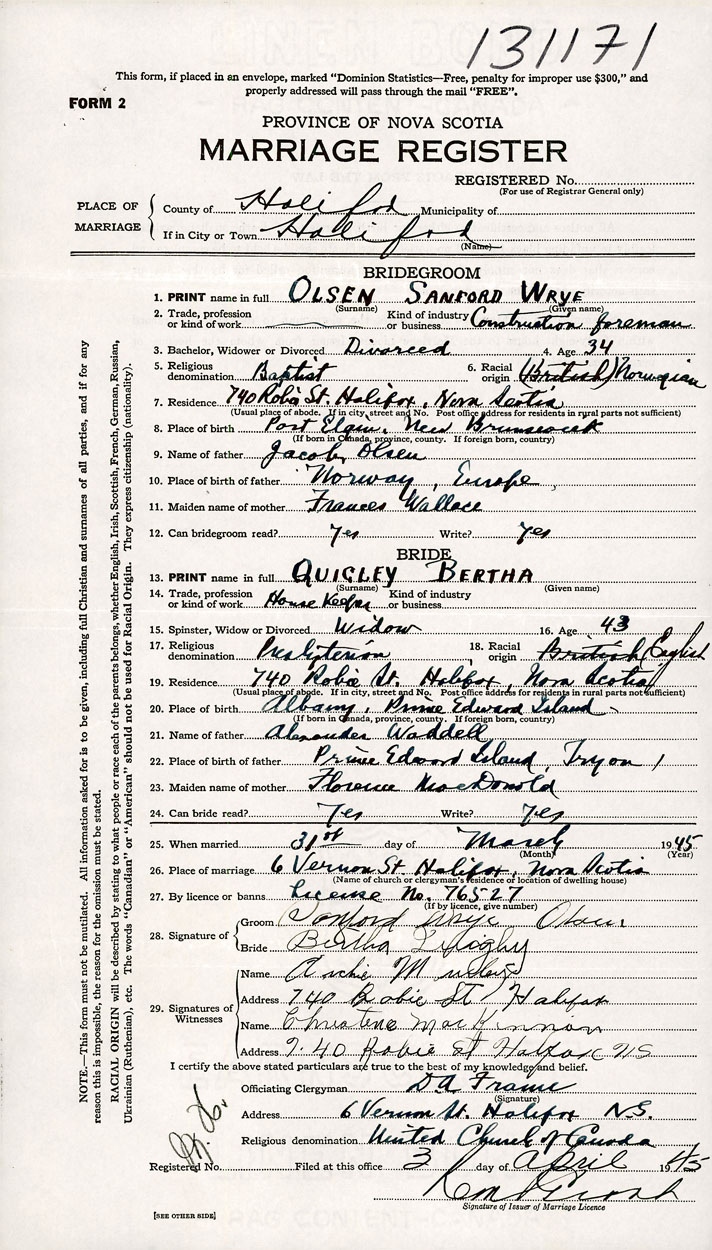 131171
This form, if placed in an envelope, marked "Dominion Statistics—Free, penalty for improper use $300," and
properly addressed will pass through the mail "FREE".
FORM 2
PROVINCE OF NOVA SCOTIA
MARRIAGE REGISTER
REGISTERED No.
(For use of Registrar General only)
PLACE OF MARRIAGE
County of Halifax Municipality of
If in City or Town Halifax
(Name)
BRIDEGROOM
1. PRINT name in full OLSEN SANFORD WRYE
(Surname) (Given name)
2. Trade, profession or kind of work Kind of industry or business Construction foreman
3. Bachelor, Widower or Divorced Divorced 4. Age 34
5. Religious denomination Baptist 6. Racial origin (British) Norwegian
7. Residence 740 Robie St. Halifax, Nova Scotia
(Usual place of abode. If in city, street and No. Post office address for residents in rural parts not sufficient)
8. Place of birth Port Elgin, New Brunswick
(If born in Canada, province, county. If foreign born, country)
9. Name of father Jacob Olsen
10. Place of birth of father Norway, Europe
11. Maiden name of mother Frances Wallace
12. Can bridegroom read? Yes Write? Yes
BRIDE
13. PRINT name in full QUIGLEY BERTHA
(Surname) (Given name)
14. Trade, profession or kind of work House Keeper Kind of industry or business
15. Spinster, Widow or Divorced Widow 16. Age 43
17. Religious denomination Presbyterian 18. Racial origin British (English
19. Residence 740 Robie St. Halifax, Nova Scotia
(Usual place of abode. If in city, street and No. Post office address for residents in rural parts not sufficient)
20. Place of birth Albany, Prince Edward Island
(If born in Canada, province, county. If foreign born, country)
21. Name of father Alexander Waddell
22. Place of birth of father Prince Edward Island, Tryon
23. Maiden name of mother Florence MacDonald
24. Can bride read? Yes Write? Yes
25. When married 31st day of March 1945
(Month) (Year)
26. Place of marriage 6 Vernon St. Halifax, Nova Scotia
(Name of church or clergyman's residence or location of dwelling house)
27. By licence or banns License No. 76527
(If by licence, give number)
28. Signature of
Groom Sanford Wrye Olsen
Bride Bertha Quigley
29. Signatures of Witnesses
Name Archie M
Address 740 Robie St Halifax
Name Christene MacKinnon
Address 740 Robie St Halifax NS
I certify the above stated particulars are true to the best of my knowledge and belief.
Officiating Clergyman D A Frame
(Signature)
Address 6 Vernon St. Halifax N.S.
Religious denomination United Church of Canada
Registered No. Filed at this office 3 day of April 1945
Signature of Issuer of Marriage Licence
[SEE OTHER SIDE]
NOTE.—This form must not be mutilated. All information asked for is to be given, including full Christian and surnames of all parties, and if for any
reason this is impossible, the reason for the omission must be stated.
RACIAL ORIGIN will be described by stating to what people or race each of the parents belongs, whether English, Irish, Scottish, French, German, Russian,
Ukrainian (Ruthenian), etc. The words "Canadian" or "American" should not be used for Racial Origin. They express citizenship (nationality).